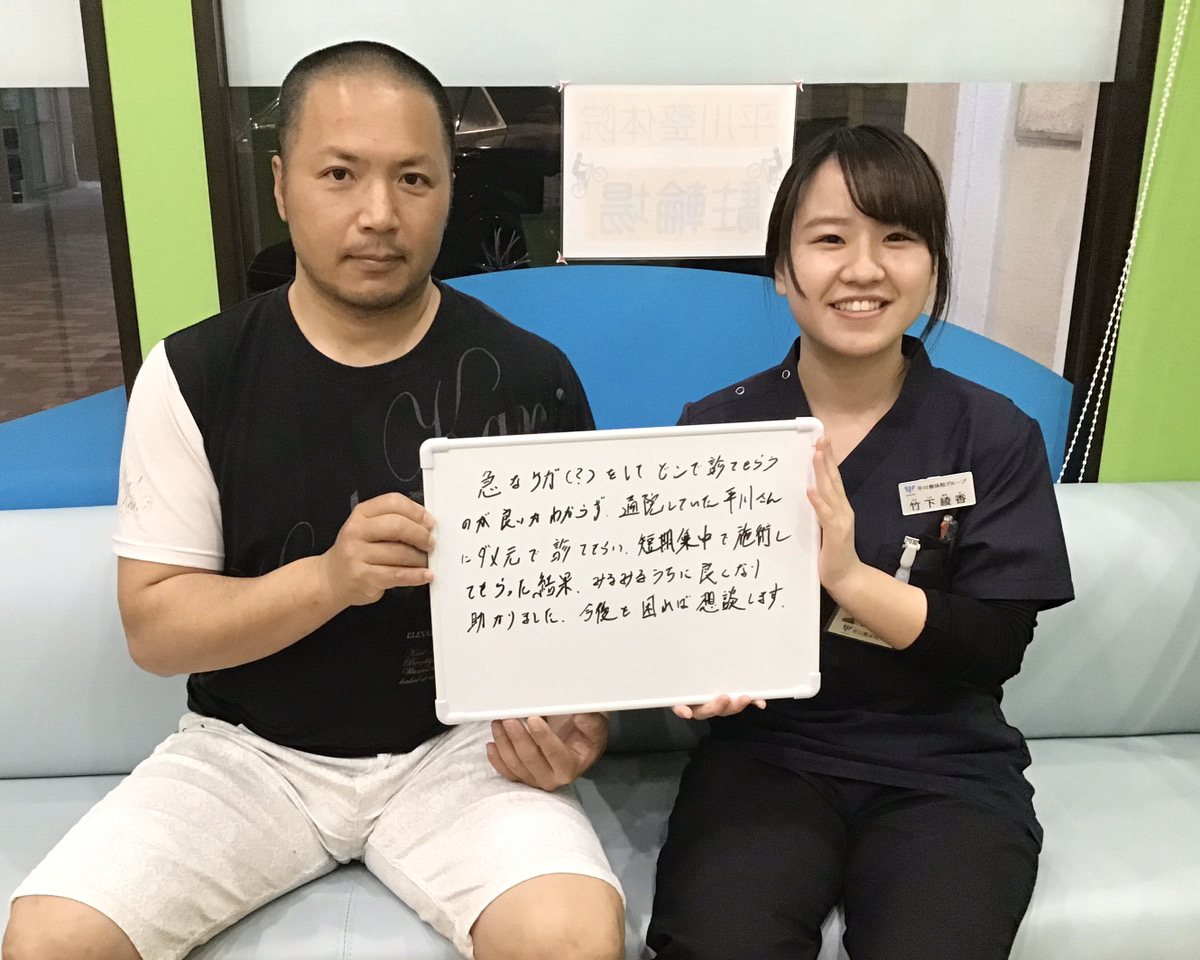 平川整体院
駐輪場
急なケガ(?)をして どこで診てもらう
のが良いかわからず、通院していた平川さん
にダメ元で診てもらい、短期集中で施術し
てもらった結果、みるみるうちに良くなり
助かりました。今後も困れば想談します。
平川整体院グループ
竹下綾香
ELEVA